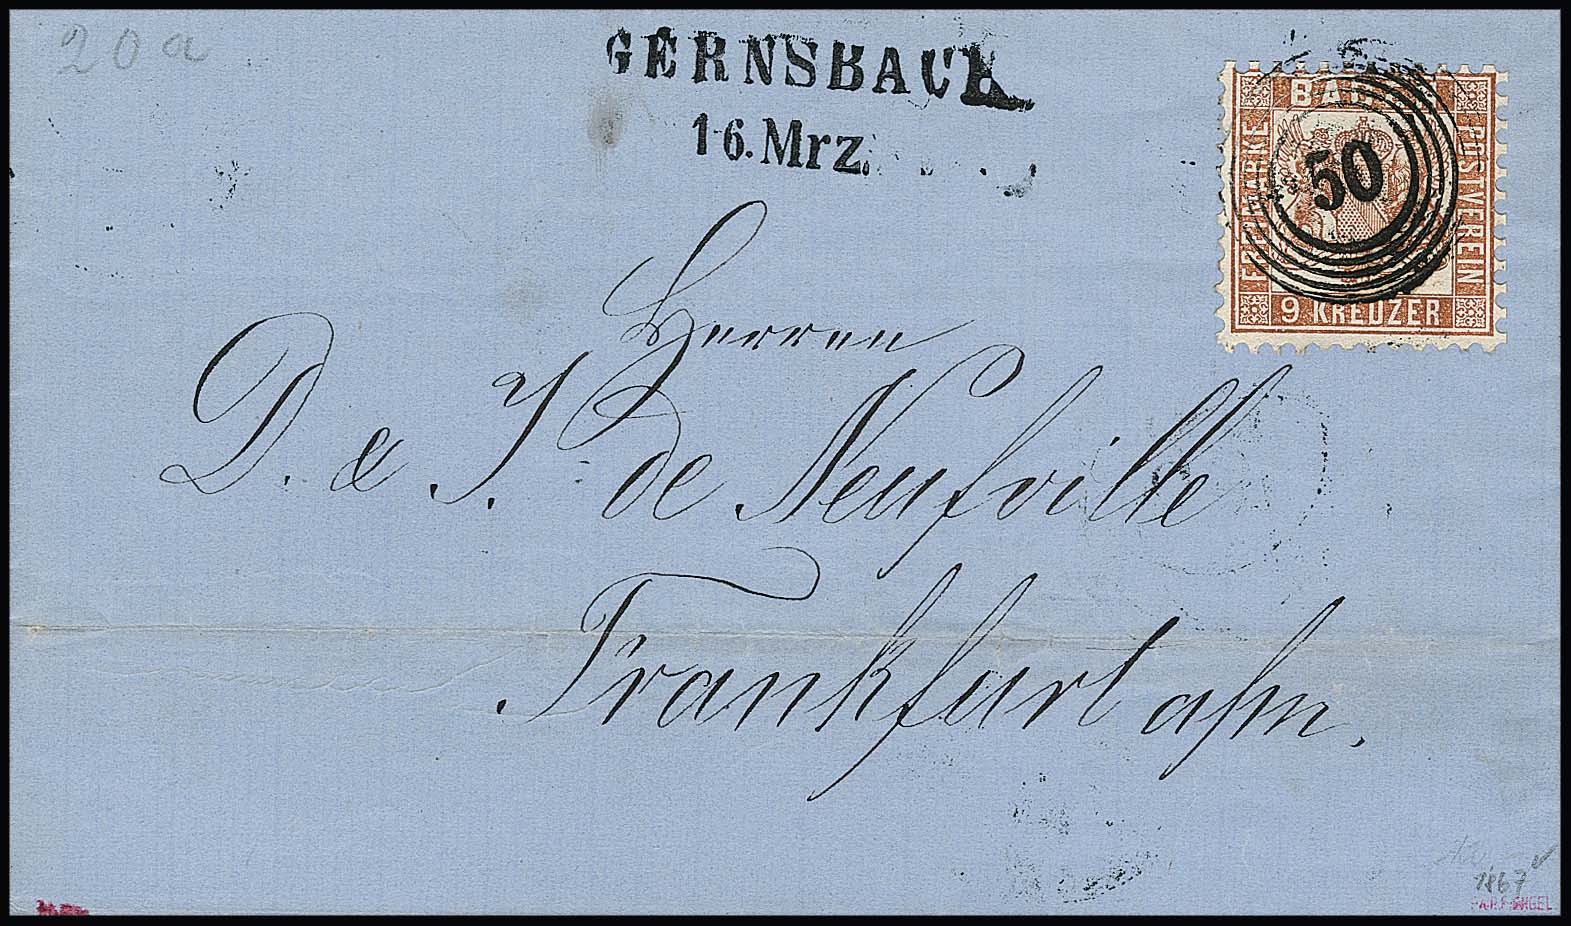 20a
GERNSBACH
16. Mrz.
BADEN
FREIMARKE
POSTVEREIN
50
9 KREUZER
Herren
D. & J. de Neufville
Frankfurt a/m.
1867
ENGEL